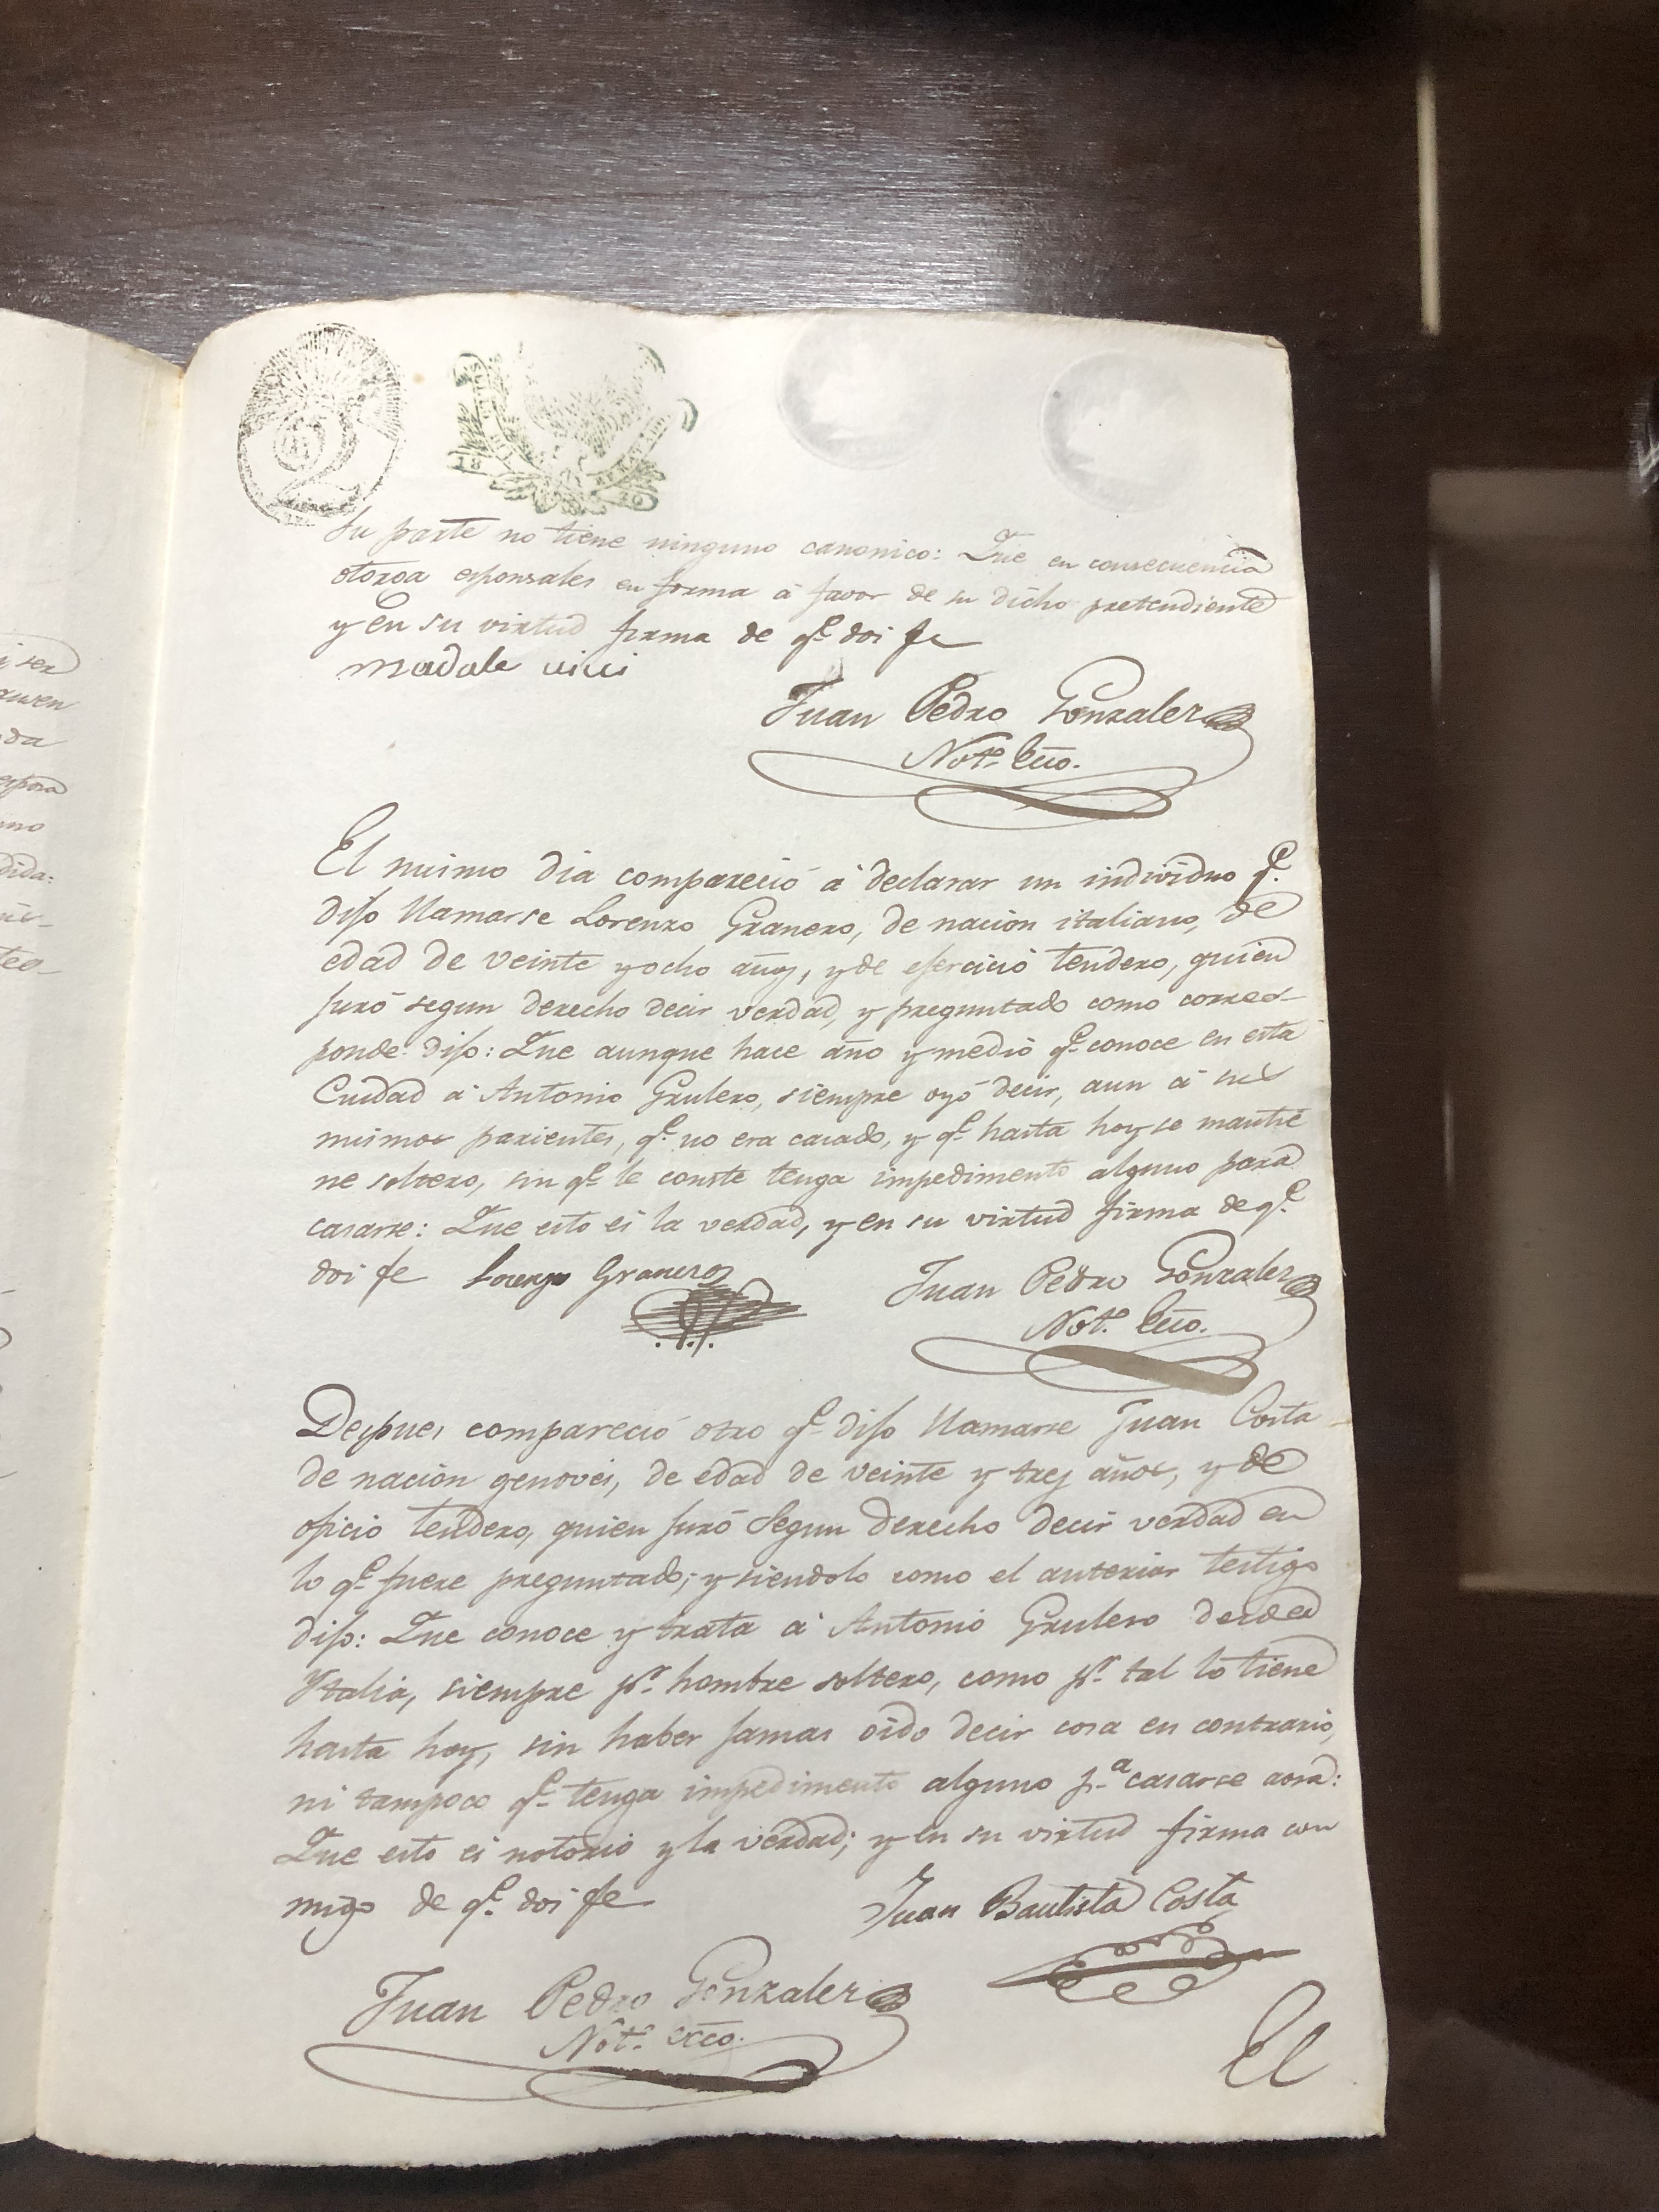 su parte no tiene ninguno canonico: Que en consecuencia
otorga esponsales en forma á favor de su dicho pretendiente
y en su virtud firma de qe. doi fe
Madale vici
Juan Pedro Gonzalez
Noto. Ecco.
El mismo dia compareció á declarar un individuo qe.
dijo llamarse Lorenzo Granero, de nacion italiano, de
edad de veinte y ocho años, y de ejercicio tendero, quien
juró segun derecho decir verdad, y preguntado como corres-
ponde dijo: Que aunque hace año y medio qe. conoce en esta
Ciudad á Antonio Grulero, siempre oyó decir, aun á sus
mismos parientes, qe. no era casado, y qe. hasta hoy se mantie
ne soltero, sin qe. le conste tenga impedimento alguno para
casarse: Que esto es la verdad, y en su virtud firma de qe.
doi fe Lorenzo Granero
Juan Pedro Gonzalez
Noto. Ecco.
Despues compareció otro qe. dijo llamarse Juan Costa
de nacion genoves, de edad de veinte y tres años, y de
oficio tendero, quien juró segun derecho decir verdad en
lo qe. fuere preguntado; y siendolo como el anterior testigo
dijo: Que conoce y trata á Antonio Grulero desde
Ytalia, siempre pr. hombre soltero, como pr. tal lo tiene
hasta hoy, sin haber jamas oido decir cosa en contrario,
ni tampoco qe. tenga impedimento alguno pa. casarse aora:
Que esto es notorio y la verdad; y en su virtud firma con
migo de qe. doi fe
Juan Bautista Costa
Juan Pedro Gonzalez
Noto. ecco.
El